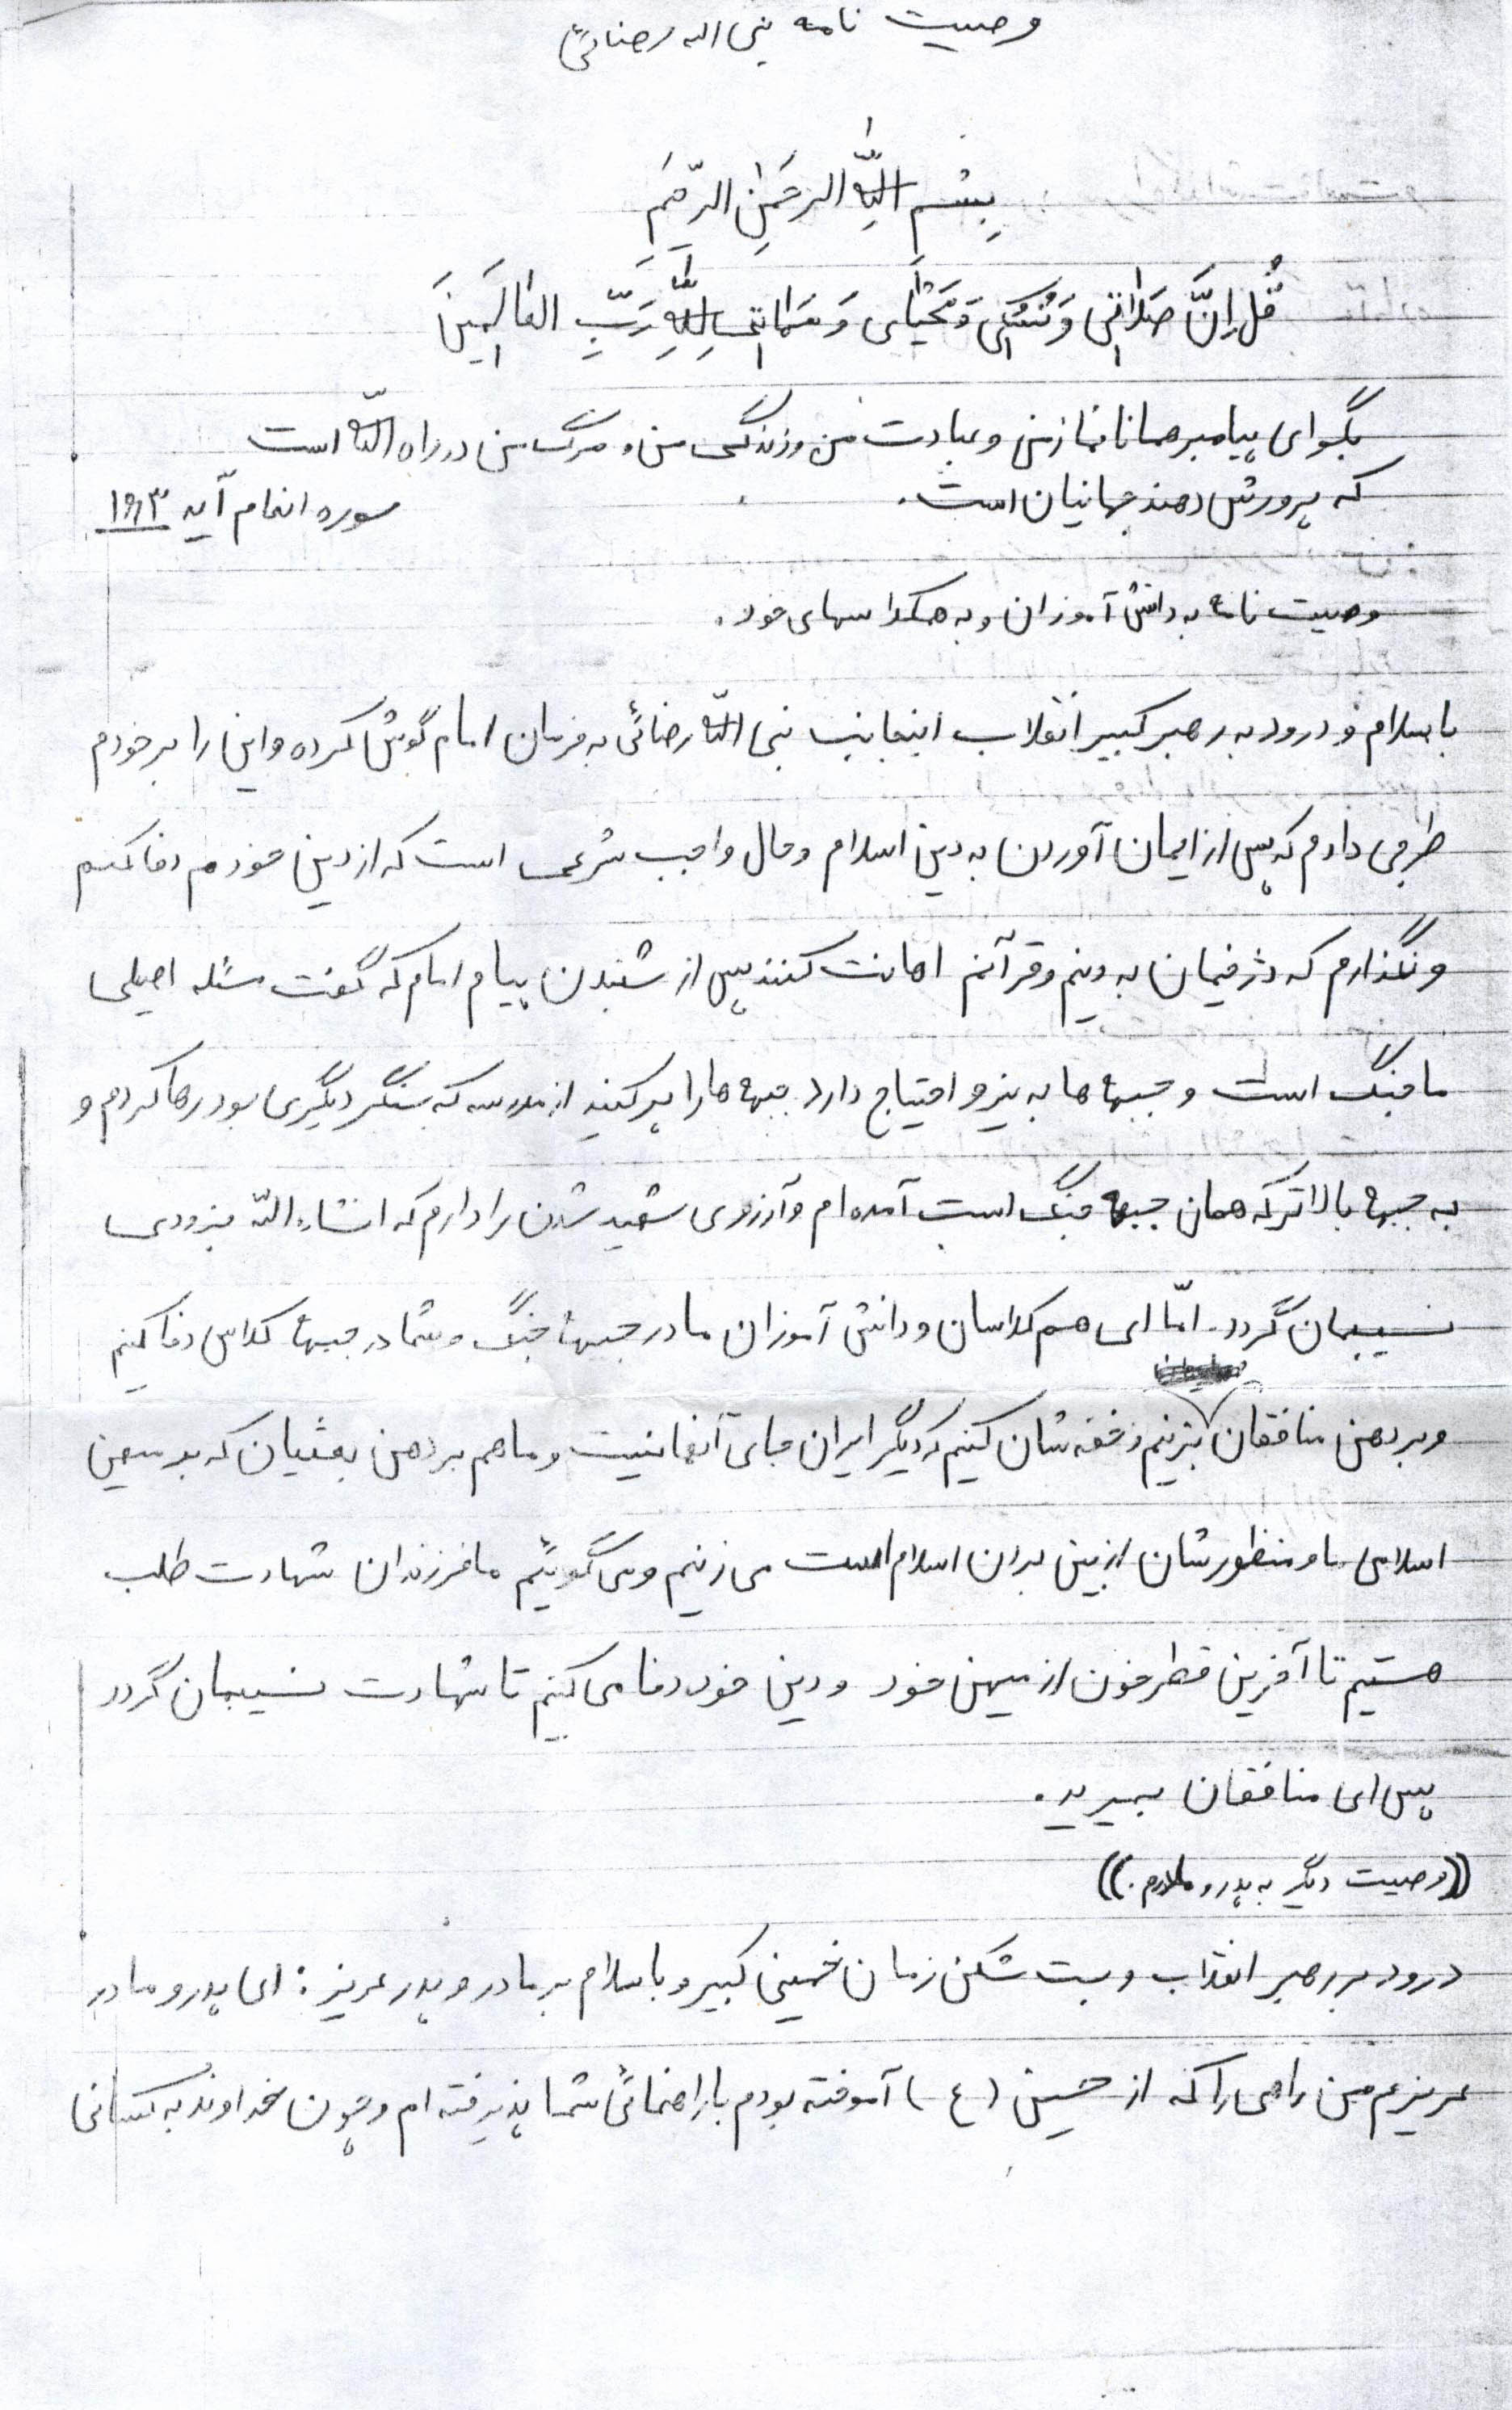 وصیت نامه نبی اله رضائی
بِسْمِ اللهِ الرحمنِ الرحیم
قُل اِنَّ صَلاتی وَ نُسُکی وَ مَحْیایَ وَ مَمَاتی لِلّهِ رَبِّ العَالَمینَ
بگو ای پیامبر همانا نماز من و عبادت من و زندگی من و مرگ من در راه الله است
که پرورش دهند جهانیان است.
سوره انعام آیه ۱۹۳
وصیت نامه به دانش آموزان و به همکلاسهای خود.
با سلام و درود به رهبر کبیر انقلاب اینجانب نبی الله رضائی به فرمان امام گوش کرده و این را بر خودم
طرحی دارم که پس از ایمان آوردن به دین اسلام و حال واجب شرعی است که از دین خودم دفاکنم
و نگذارم که دژخیمان به دینم و قرآنم اهانت کنند پس از شنیدن پیام امام که گفت مسئله اصلی
ما جنگ است و جبهه ها به نیرو احتیاج دارد جبهه ها را پر کنید از مدرسه که سنگر دیگری بود رها کردم و
به جبهه بالاتر که همان جبهه جنگ است آمده ام و آرزوی شهید شدن را دارم که انشاء الله بزودی
نسیبمان گردد. امّا ای هم کلاسان و دانش آموزان ما در جبهه جنگ و شما در جبهه کلاس دفاکنیم
و بر دهن منافقان بزنیم و خفه شان کنیم که دیگر ایران جای آنها نیست و ما هم بر دهن بعثیان که به میهن
اسلامی ما و منظورشان از بین بردن اسلام است می زنیم و می گوئیم ما فرزندان شهادت طلب
هستیم تا آخرین قطر خون از میهن خود و دین خود دفا می کنیم تا شهادت نسیبمان گردد
پس ای منافقان بمیرید.
((وصیت دیگر به پدر و مادرم.))
درود بر رهبر انقلاب و بت شکن زمان خمینی کبیر و با سلام بر مادر و پدر عزیز: ای پدر و مادر
عزیزم من راهی را که از حسین (ع) آموخته بودم با راهنمائی شما پذیرفته ام و چون خداوند به کسانی